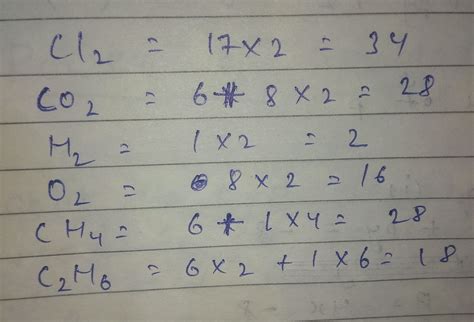 Cl2 = 17×2 = 34
CO2 = 6 + 8×2 = 28
H2 = 1×2 = 2
O2 = 8×2 = 16
CH4 = 6 + 1×4 = 28
C2H6 = 6×2 + 1×6 = 18